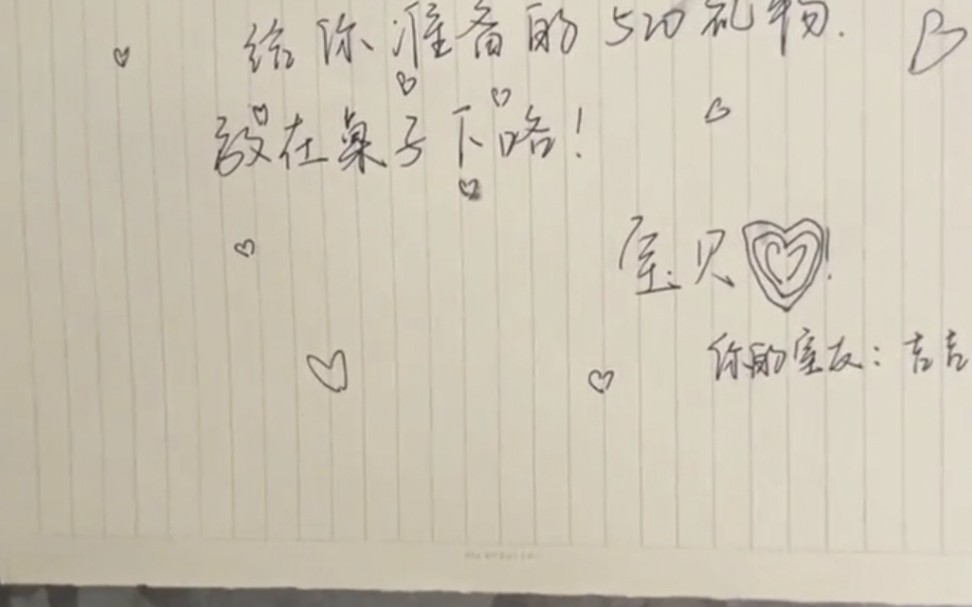 给你准备的520礼物.
放在桌子下咯!
宝贝!
你的室友:吉吉